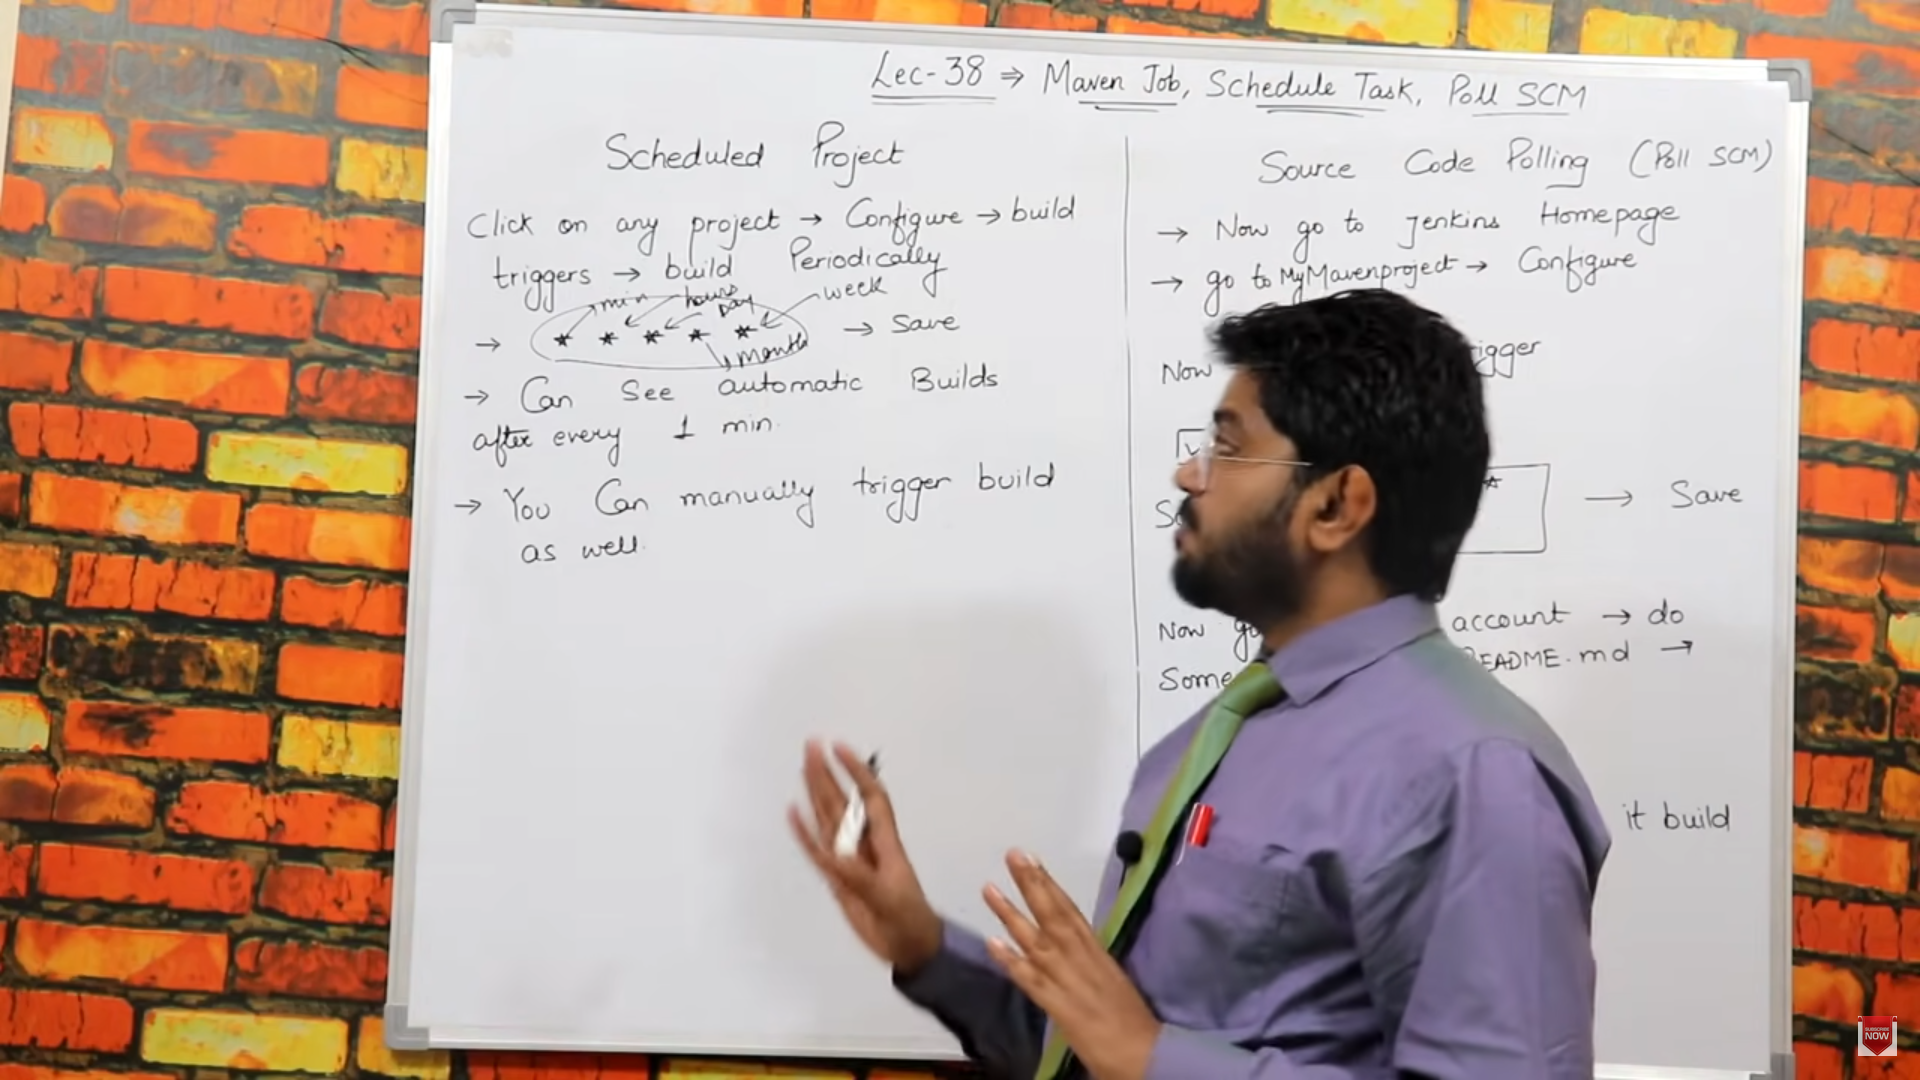 Lec-38 ⇒ Maven Job, Schedule Task, Poll SCM
Scheduled Project
Click on any project → Configure → build
triggers → build Periodically
min hours Day week
→ * * * * * → Save
month
→ Can See automatic Builds
after every 1 min.
→ You Can manually trigger build
as well.
Source Code Polling (Poll SCM)
→ Now go to Jenkins Homepage
→ go to MyMavenproject → Configure
Now
* → Save
Now go account → do
Some README.md →
it build
SUBSCRIBE
NOW